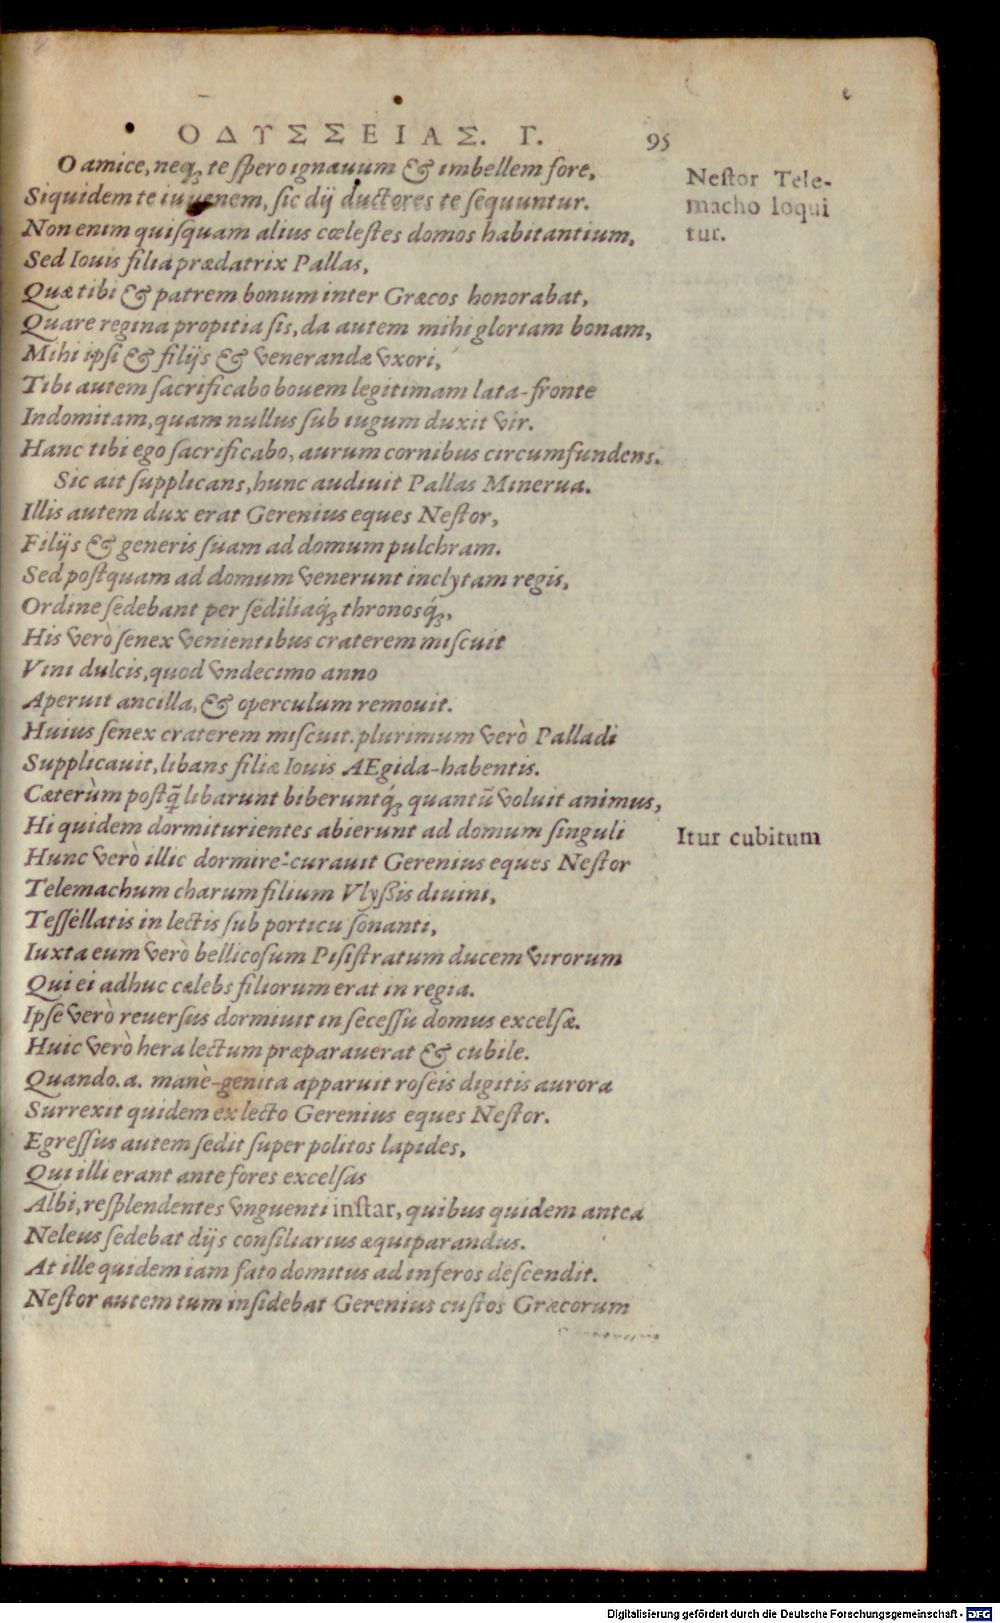 ΟΔΥΣΣΕΙΑΣ. Γ. 95
O amice, neq; te spero ignauum & imbellem fore,
Siquidem te iuuenem, sic dij ductores te sequuntur.
Non enim quisquam alius cœlestes domos habitantium,
Sed Iouis filia prædatrix Pallas,
Quæ tibi & patrem bonum inter Græcos honorabat,
Quare regina propitia sis, da autem mihi gloriam bonam,
Mihi ipsi & filijs & venerandæ vxori,
Tibi autem sacrificabo bouem legitimam lata-fronte
Indomitam, quam nullus sub iugum duxit vir.
Hanc tibi ego sacrificabo, aurum cornibus circumfundens.
Sic ait supplicans, hunc audiuit Pallas Minerua.
Illis autem dux erat Gerenius eques Nestor,
Filijs & generis suam ad domum pulchram.
Sed postquam ad domum venerunt inclytam regis,
Ordine sedebant per sediliaq́; thronosq́;,
His verò senex venientibus craterem miscuit
Vini dulcis, quod vndecimo anno
Aperuit ancilla, & operculum remouit.
Huius senex craterem miscuit. plurimum verò Palladi
Supplicauit, libans filiæ Iouis AEgida-habentis.
Cæterùm postq̃ libarunt biberuntq́; quantũ voluit animus,
Hi quidem dormiturientes abierunt ad domum singuli
Hunc verò illic dormire-curauit Gerenius eques Nestor
Telemachum charum filium Vlyßis diuini,
Tessellatis in lectis sub porticu sonanti,
Iuxta eum verò bellicosum Pisistratum ducem virorum
Qui ei adhuc cælebs filiorum erat in regia.
Ipse verò reuersus dormiuit in secessu domus excelsæ.
Huic verò hera lectum præparauerat & cubile.
Quando.a. manè-genita apparuit roseis digitis aurora
Surrexit quidem ex lecto Gerenius eques Nestor.
Egressus autem sedit super politos lapides,
Qui illi erant ante fores excelsas
Albi, resplendentes vnguenti instar, quibus quidem antea
Neleus sedebat dijs consiliarius æquiparandus.
At ille quidem iam fato domitus ad inferos descendit.
Nestor autem tum insidebat Gerenius custos Græcorum
Nestor Tele-
macho loqui
tur.
Itur cubitum
Digitalisierung gefördert durch die Deutsche Forschungsgemeinschaft - DFG